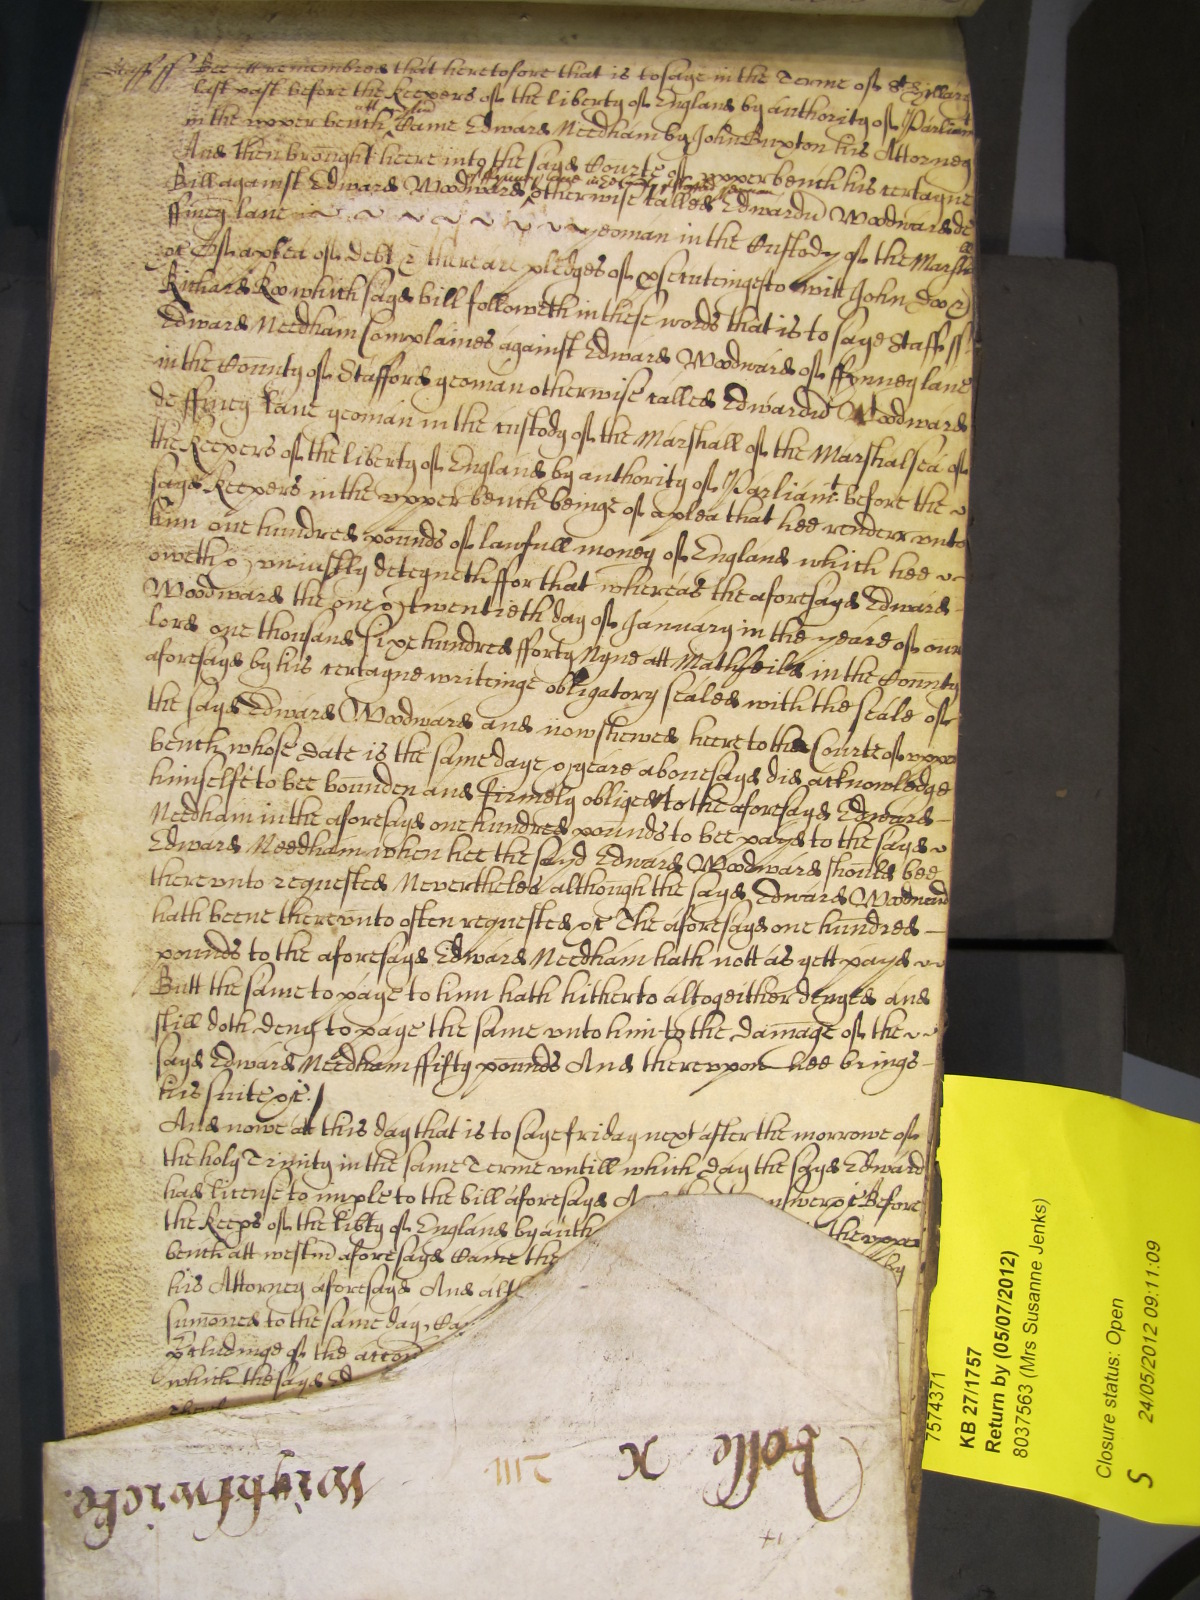 Staff ss Bee itt remembred that heretofore that is to saye in the Terme of St Hillary
last past before the Keepers of the liberty of England by authority of Parliamt
in the upper bench att Came Edward Needham by John Buxton his Attorney
And then brought heere into the sayd Courte of upper bench his certayne
Bill against Edward Woodward otherwise called Edwardu Woodward de
ffiney lane yeoman in the Custody of the Marshall
&c Of a plea of debt & there are pledges of prosecuteinge to witt John Doo &
Richard Roo which sayd bill followeth in these words that is to saye Staff ss
Edward Needham Complaines against Edward Woodward of ffynney lane
in the County of Stafford yeoman otherwise called Edwardu Woodward
de ffiney lane yeoman in the custody of the Marshall of the Marshalsea of
the Keepers of the liberty of England by authority of Parliamt before the
sayd Keepers in the upper bench beinge of a plea that hee render unto
him one hundred pounds of lawfull money of England which hee
oweth & uniustly deteyneth ffor that whereas the aforesayd Edward
Woodward the one & twentieth day of January in the yeare of our
lord one thousand sixe hundred fforty Nyne att Mathfeild in the County
aforesayd by his certayne writeinge obligatory sealed with the seale of
the sayd Edward Woodward and now shewed heere to the Courte of upper
bench whose date is the same daye & yeare abovesayd did acknowledge
himselfe to bee bounden and firmely obliged to the aforesayd Edward
Needham in the aforesayd one hundred pounds to bee payd to the sayd
Edward Needham when hee the sayd Edward Woodward should bee
there unto requested Nevertheles although the sayd Edward Woodward
hath beene there unto often requested &c The aforesayd one hundred
pounds to the aforesayd Edward Needham hath nott as yett payd
Butt the same to paye to him hath hitherto altogeither denyed and
still doth deny to paye the same unto him to the damage of the
sayd Edward Needham ffifty pounds And thereupon hee brings
his suite &c.
And nowe at this day that is to saye friday next after the morrowe of
the holy Trinity in the same Terme untill which day the sayd Edward
had license to imple to the bill aforesayd &c Before
the Keeps of the libty of England by auth the upper
bench att westm aforesayd Came the by
his Attorney aforesayd And alt
sumoned to the same day
of the
which the sayd Ed
Rolle x
2111
Wightwicke.
7574371
KB 27/1757
Return by (05/07/2012)
8037563 (Mrs Susanne Jenks)
Closure status: Open
S 24/05/2012 09:11:09